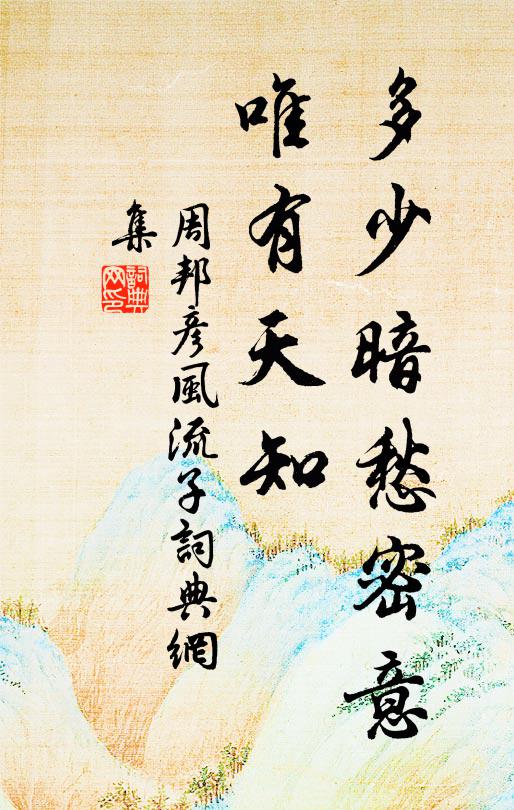 多少暗愁密意
唯有天知
周邦彦風流子詞典網
集
詞典網印